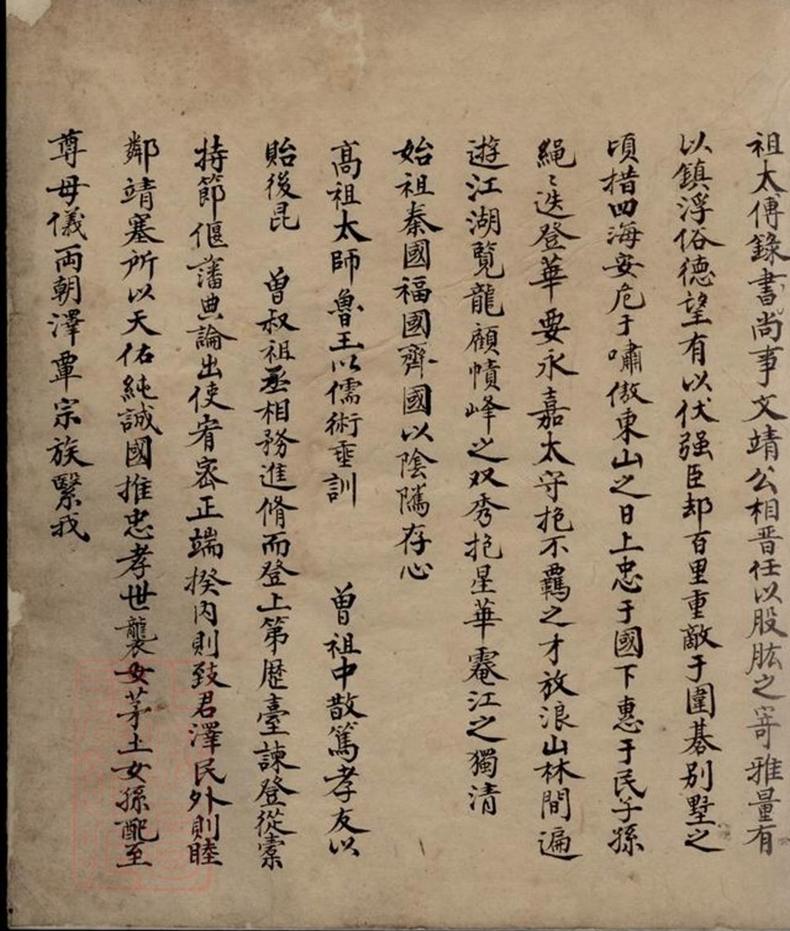 祖太傅錄書尚事文靖公相晋任以股肱之寄雅量有
以鎮浮俗德望有以伏强臣却百里重敵于圍碁别墅之
頃措四海安危于嘯傲東山之日上忠于國下惠于民子孫
繩〻迭登華要永嘉太守抱不羈之才放浪山林間遍
遊江湖覽龍顧幘峰之双秀挹星華灵江之獨清
始祖秦國福國齊國以陰隲存心
髙祖太師魯王以儒術垂訓 曽祖中散篤孝友以
貽後昆 曽叔祖丞相務進脩而登上第歴臺諌登從橐
持節偃藩典論出使宥宻正端揆内則致君澤民外則睦
鄰靖塞所以天佑純誠國推忠孝世襲女茅土女孫配至
尊母儀兩朝澤覃宗族緊我